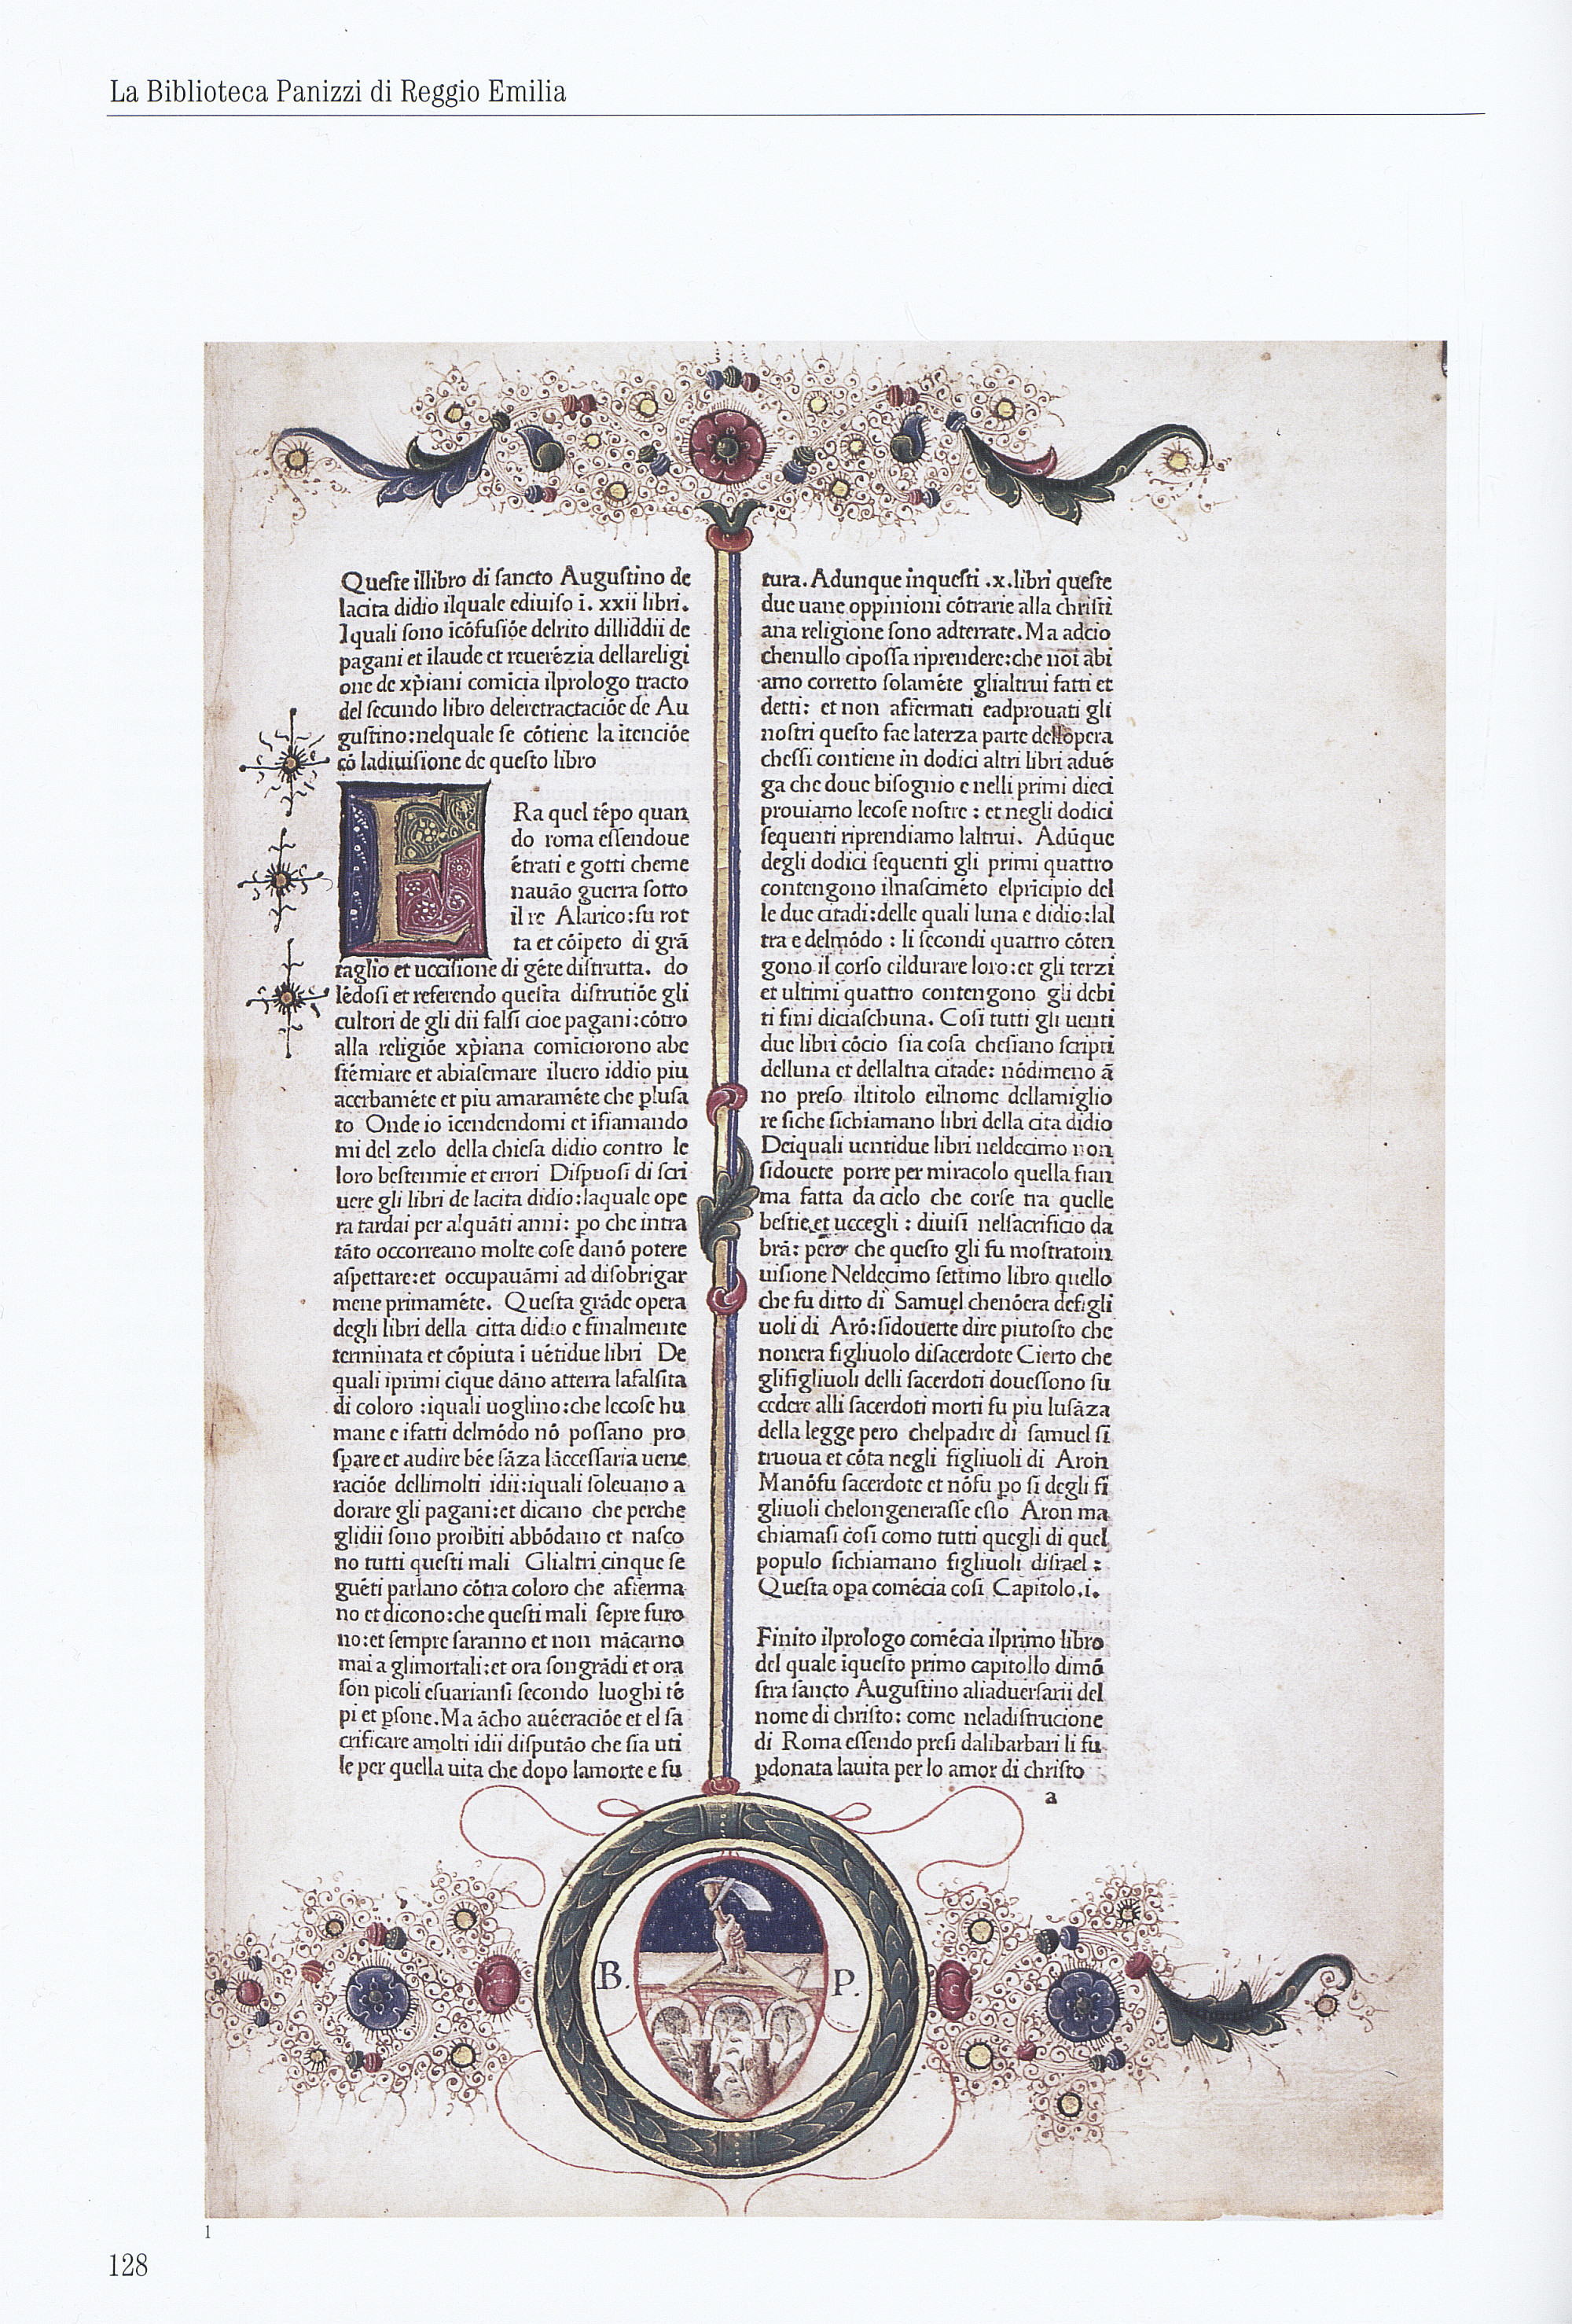 La Biblioteca Panizzi di Reggio Emilia
Queste illibro di sancto Augustino de
lacita didio ilquale ediuiso ī. xxii libri.
Iquali sono īcōfusiōe delrito dilliddii de
pagani et īlaude et reuerēzia dellareligi
one de xp̄iani comīcia ilprologo tracto
del secundo libro deleretractaciōe de Au
gustino:nelquale se cōtiene la ītenciōe
cō ladiuisione de questo libro
ERa quel tēpo quan
do roma essendoue
ētrati e gotti cheme
nauāo guerra sotto
il re Alarico:fu rot
ta et cōīpeto di grā
taglio et uccisione di gēte distrutta. do
lēdosi et referendo questa distrutiōe gli
cultori de gli dii falsi cioe pagani:cōtro
alla religiōe xp̄iana comīciorono abe
stēmiare et abiasemare iluero iddio piu
acerbamēte et piu amaramēte che ꝑlusa
to Onde io īcendendomi et īfiamando
mi del zelo della chiesa didio contro le
loro bestenmie et errori Dispuosi di scri
uere gli libri de lacita didio:laquale ope
ra tardai per alquāti anni: ꝑo che intra
tāto occorreano molte cose danō potere
aspettare:et occupauāmi ad disobrigar
mene primamēte. Questa grāde opera
degli libri della citta didio e finalmente
terminata et cōpiuta ī uētidue libri De
quali iprimi cīque dāno atterra lafalsita
di coloro :iquali uoglino:che lecose hu
mane e ifatti delmōdo nō possano pro
sꝑare et audire bēe sāza lāecessaria uene
raciōe dellimolti idii:iquali soleuano a
dorare gli pagani:et dicano che perche
glidii sono proibiti abbōdano et nasco
no tutti questi mali Glialtri cinque se
guēti parlano cōtra coloro che afierma
no et dicono:che questi mali sēpre furo
no:et sempre saranno et non mācarno
mai a glimortali:et ora son grādi et ora
son picoli esuariansi secondo luoghi tē
pi et ꝑsone. Ma ācho auēeraciōe et el sa
crificare amolti idii disputāo che sia uti
le per quella uita che dopo lamorte e fu
tura. Adunque inquesti .x. libri queste
due uane oppinioni cōtrarie alla christi
ana religione sono adterrate. Ma adcio
chenullo cipossa riprendere:che noi abi
amo corretto solamēte glialtrui fatti et
detti: et non affermati eadprouati gli
nostri questo fae laterza parte dellopera
chessi contiene in dodici altri libri aduē
ga che doue bisognio e nelli primi dieci
prouiamo lecose nostre : et negli dodici
sequenti riprendiamo laltrui. Adūque
degli dodici sequenti gli primi quattro
contengono ilnascimēto elprīcipio del
le due citadi:delle quali luna e didio:lal
tra e delmōdo : li secondi quattro cōten
gono il corso eildurare loro:et gli terzi
et ultimi quattro contengono gli debi
ti fini diciaschuna. Cosi tutti gli uenti
due libri cōcio sia cosa chesiano scripti
delluna et dellaltra citade: nōdimeno ā
no preso iltitolo eilnome dellamiglio
re siche sichiamano libri della cita didio
Deiquali uentidue libri neldecimo non
sidouete porre per miracolo quella fian
ma fatta da cielo che corse tra quelle
bestie et uccegli : diuisi nelsacrificio da
brā: pero che questo gli fu mostratoin
uisione Neldecimo settimo libro quello
che fu ditto di Samuel chenōera defigli
uoli di Arō:sidouette dire piutosto che
nonera figliuolo disacerdote Cierto che
glifigliuoli delli sacerdoti douessono su
cedere alli sacerdoti morti fu piu lusāza
della legge pero chelpadre di samuel si
truoua et cōta negli figliuoli di Aron
Manōfu sacerdote et nōfu ꝑo si degli fi
gliuoli chelongenerasse esso Aron ma
chiamasi cosi como tutti quegli di quel
populo sichiamano figliuoli disrael :
Questa oꝑa comēcia cosi Capitolo.i.
Finito ilprologo comēcia ilprimo libro
del quale īquesto primo capitollo dimō
stra sancto Augustino aliaduersarii del
nome di christo: come neladistrucione
di Roma essendo presi dalibarbari li fu
ꝑdonata lauita per lo amor di christo
a
B. P.
1
128